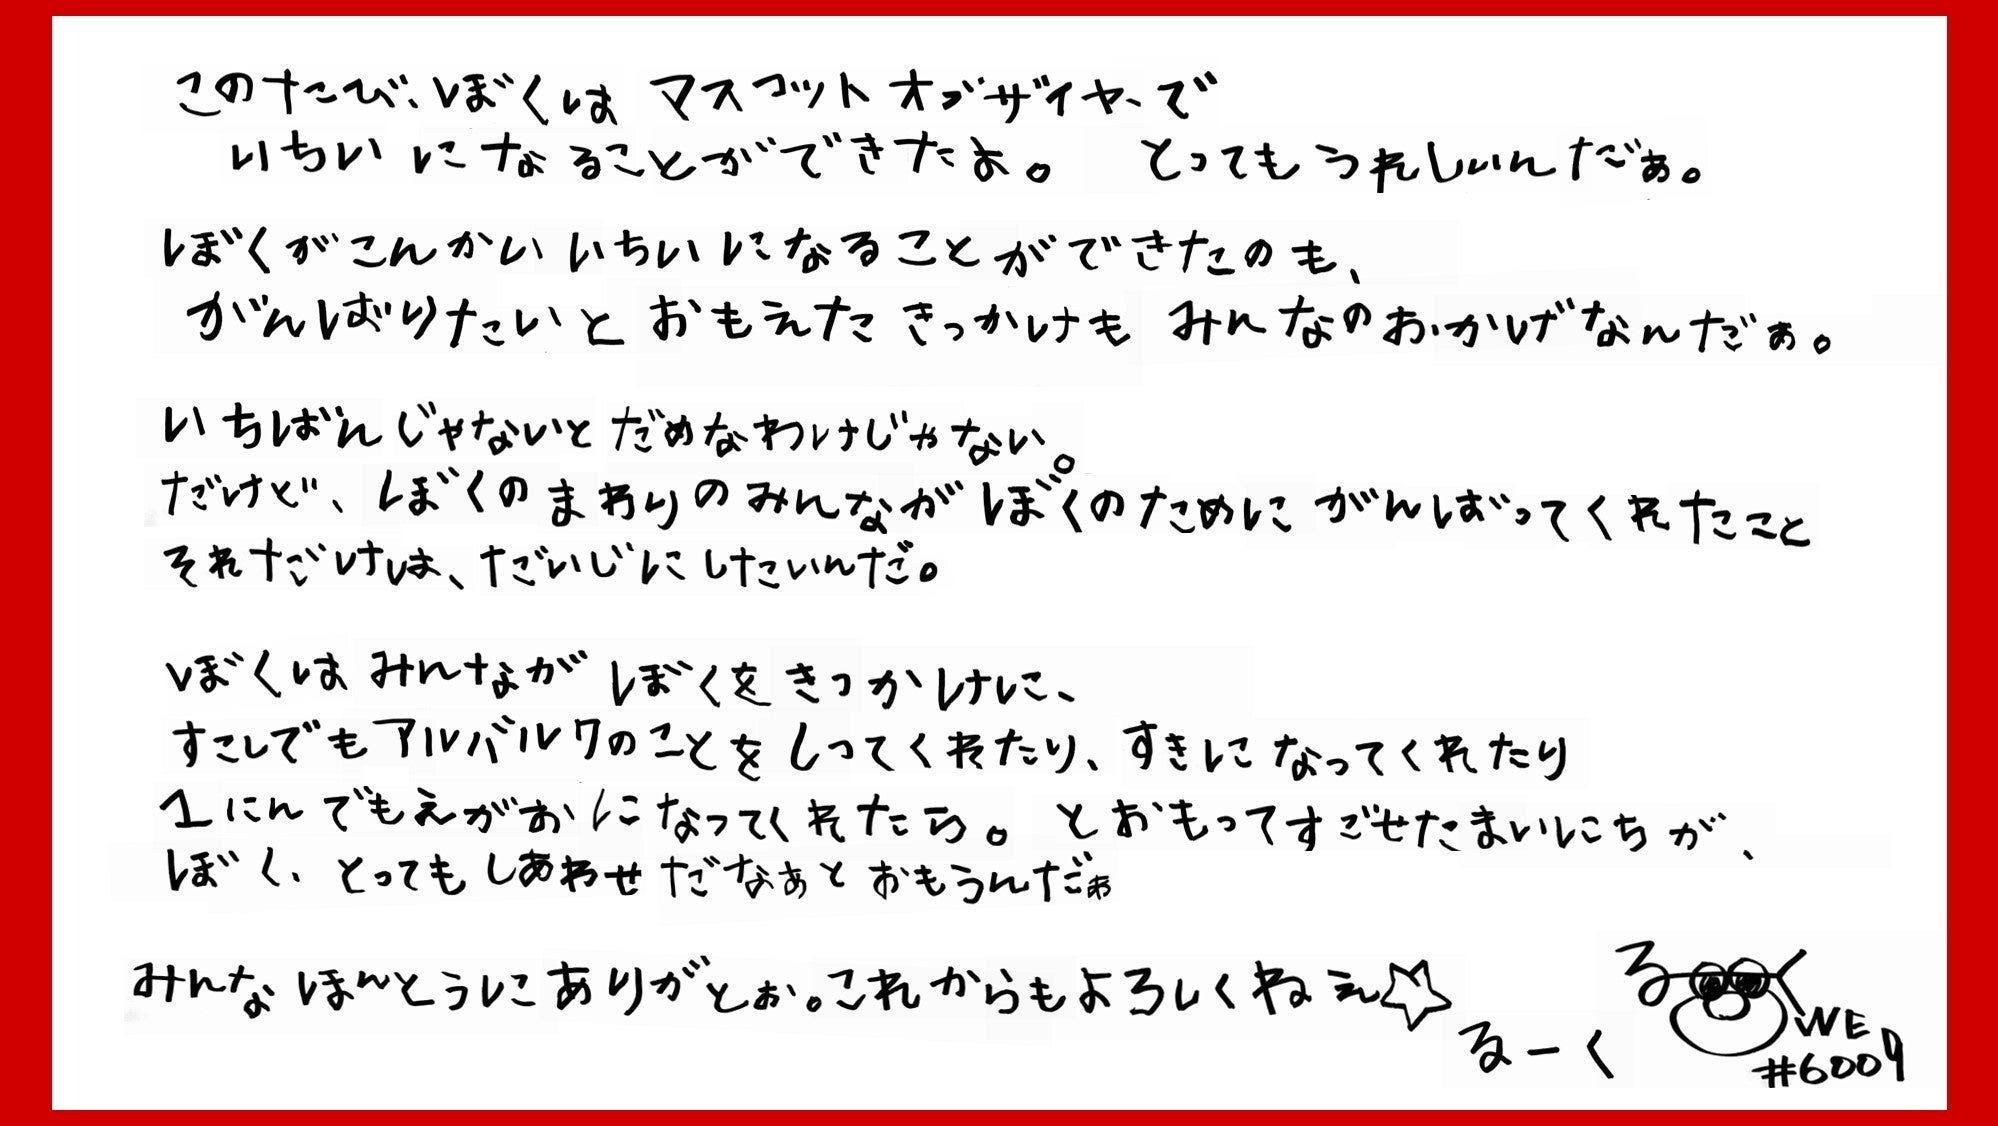 このたび、ぼくは マスコットオブザイヤーで
いちいになることができたよ。 とってもうれしいんだぁ。
ぼくがこんかい いちいになることができたのも、
がんばりたいと おもえた きっかけも みんなのおかげなんだぁ。
いちばんじゃないと だめなわけじゃない。
だけど、ぼくのまわりのみんながぼくのために がんばってくれたこと
それだけは、だいじにしたいんだ。
ぼくは みんなが ぼくを きっかけに、
すこしでもアルバルクのことをしってくれたり、すきになってくれたり
1にんでもえがおになってくれたら。とおもってすごせたまいにちが、
ぼく、とってもしあわせだなぁとおもうんだぁ
みんなほんとうにありがとぉ。これからもよろしくねぇ☆
るーく
る く
WE
#6009